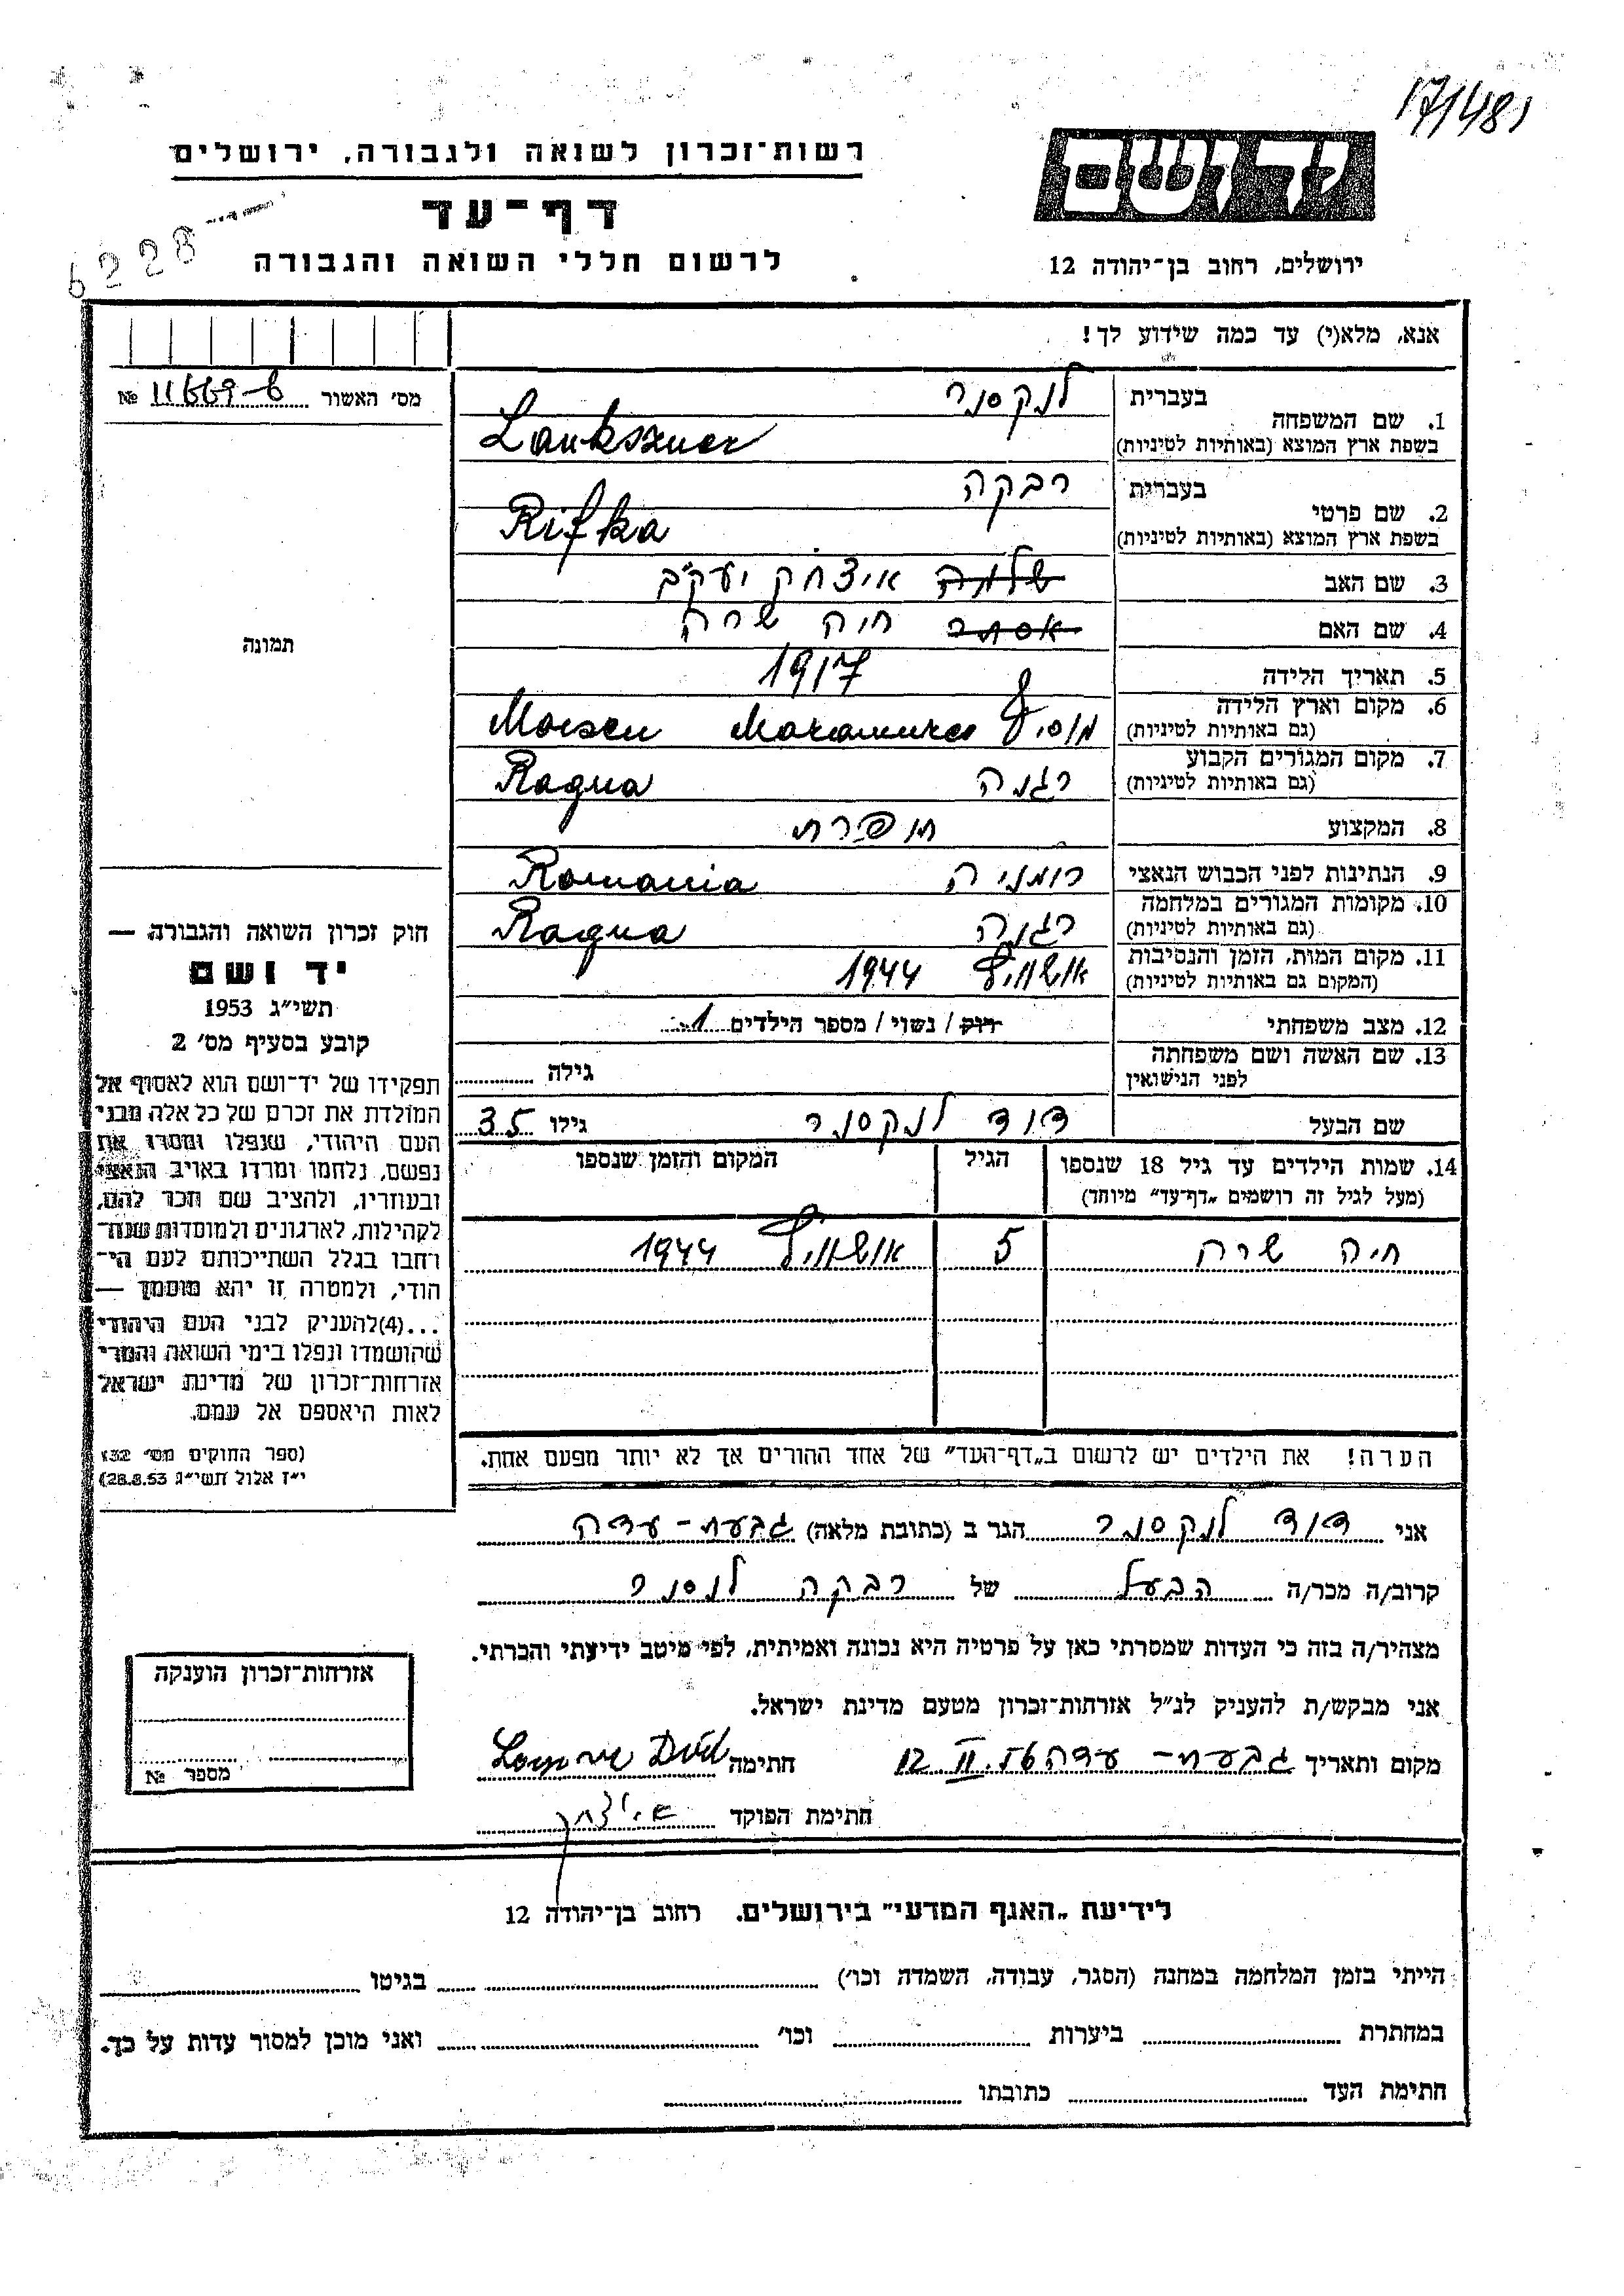 171481
יד ושם
רשות־זכרון לשואה ולגבורה, ירושלים
דף־עד
לרשום חללי השואה והגבורה
6228
ירושלים, רחוב בן־יהודה 12
אנא, מלא(י) עד כמה שידוע לך!
מס׳ האשור № 11669-6
1. שם המשפחה בעברית לנקסנר
בשפת ארץ המוצא (באותיות לטיניות) Lankszner
2. שם פרטי בעברית רבקה
בשפת ארץ המוצא (באותיות לטיניות) Rifka
3. שם האב שלמה איצחק יעקב
4. שם האם אסתר חיה שרה
5. תאריך הלידה 1917
6. מקום וארץ הלידה
(גם באותיות לטיניות) Moiseu Maramures
7. מקום המגורים הקבוע
(גם באותיות לטיניות) רגנה Ragna
8. המקצוע תופרת
9. הנתינות לפני הכבוש הנאצי רומניה Romania
10. מקומות המגורים במלחמה
(גם באותיות לטיניות) רגנה Ragna
11. מקום המות, הזמן והנסיבות
(המקום גם באותיות לטיניות) אושוויץ 1944
12. מצב משפחתי רוק / נשוי / מספר הילדים 1
13. שם האשה ושם משפחתה
לפני הנישואין גילה
שם הבעל דוד לנקסנר גילו 35
14. שמות הילדים עד גיל 18 שנספו הגיל המקום והזמן שנספו
(מעל לגיל זה רושמים „דף־עד״ מיוחד)
חיה שרה 5 אושוויץ 1944
הערה! את הילדים יש לרשום ב„דף־העד״ של אחד ההורים אך לא יותר מפעם אחת.
תמונה
חוק זכרון השואה והגבורה —
יד ושם
תשי״ג 1953
קובע בסעיף מס׳ 2
תפקידו של יד־ושם הוא לאסוף אל
המולדת את זכרם של כל אלה מבני
העם היהודי, שנפלו ומסרו את
נפשם, נלחמו ומרדו באויב הנאצי
ובעוזריו, ולהציב שם וזכר להם,
לקהילות, לארגונים ולמוסדות שנח־
רחבו בגלל השתייכותם לעם הי־
הודי, ולמטרה זו יהא מוסמך —
...(4)להעניק לבני העם היהודי
שהושמדו ונפלו בימי השואה והמרי
אזרחות־זכרון של מדינת ישראל
לאות היאספם אל עמם.
(ספר החוקים מס׳ 132
י״ז אלול תשי״ג 28.8.53)
אני דוד לנקסנר הגר ב (כתובת מלאה) גבעת - עדה
קרוב/ה מכר/ה הבעל של רבקה לנסנר
מצהיר/ה בזה כי העדות שמסרתי כאן על פרטיה היא נכונה ואמיתית, לפי מיטב ידיעתי והכרתי.
אני מבקש/ת להעניק לנ״ל אזרחות־זכרון מטעם מדינת ישראל.
מקום ותאריך גבעת - עדה 12.II.56 חתימה
חתימת הפוקד
אזרחות־זכרון הוענקה
מספר №
לידיעת „האגף המדעי״ בירושלים. רחוב בן־יהודה 12
הייתי בזמן המלחמה במחנה (הסגר, עבודה, השמדה וכו׳) בגיטו
במחתרת ביערות וכו׳ ואני מוכן למסור עדות על כך.
חתימת העד כתובתו